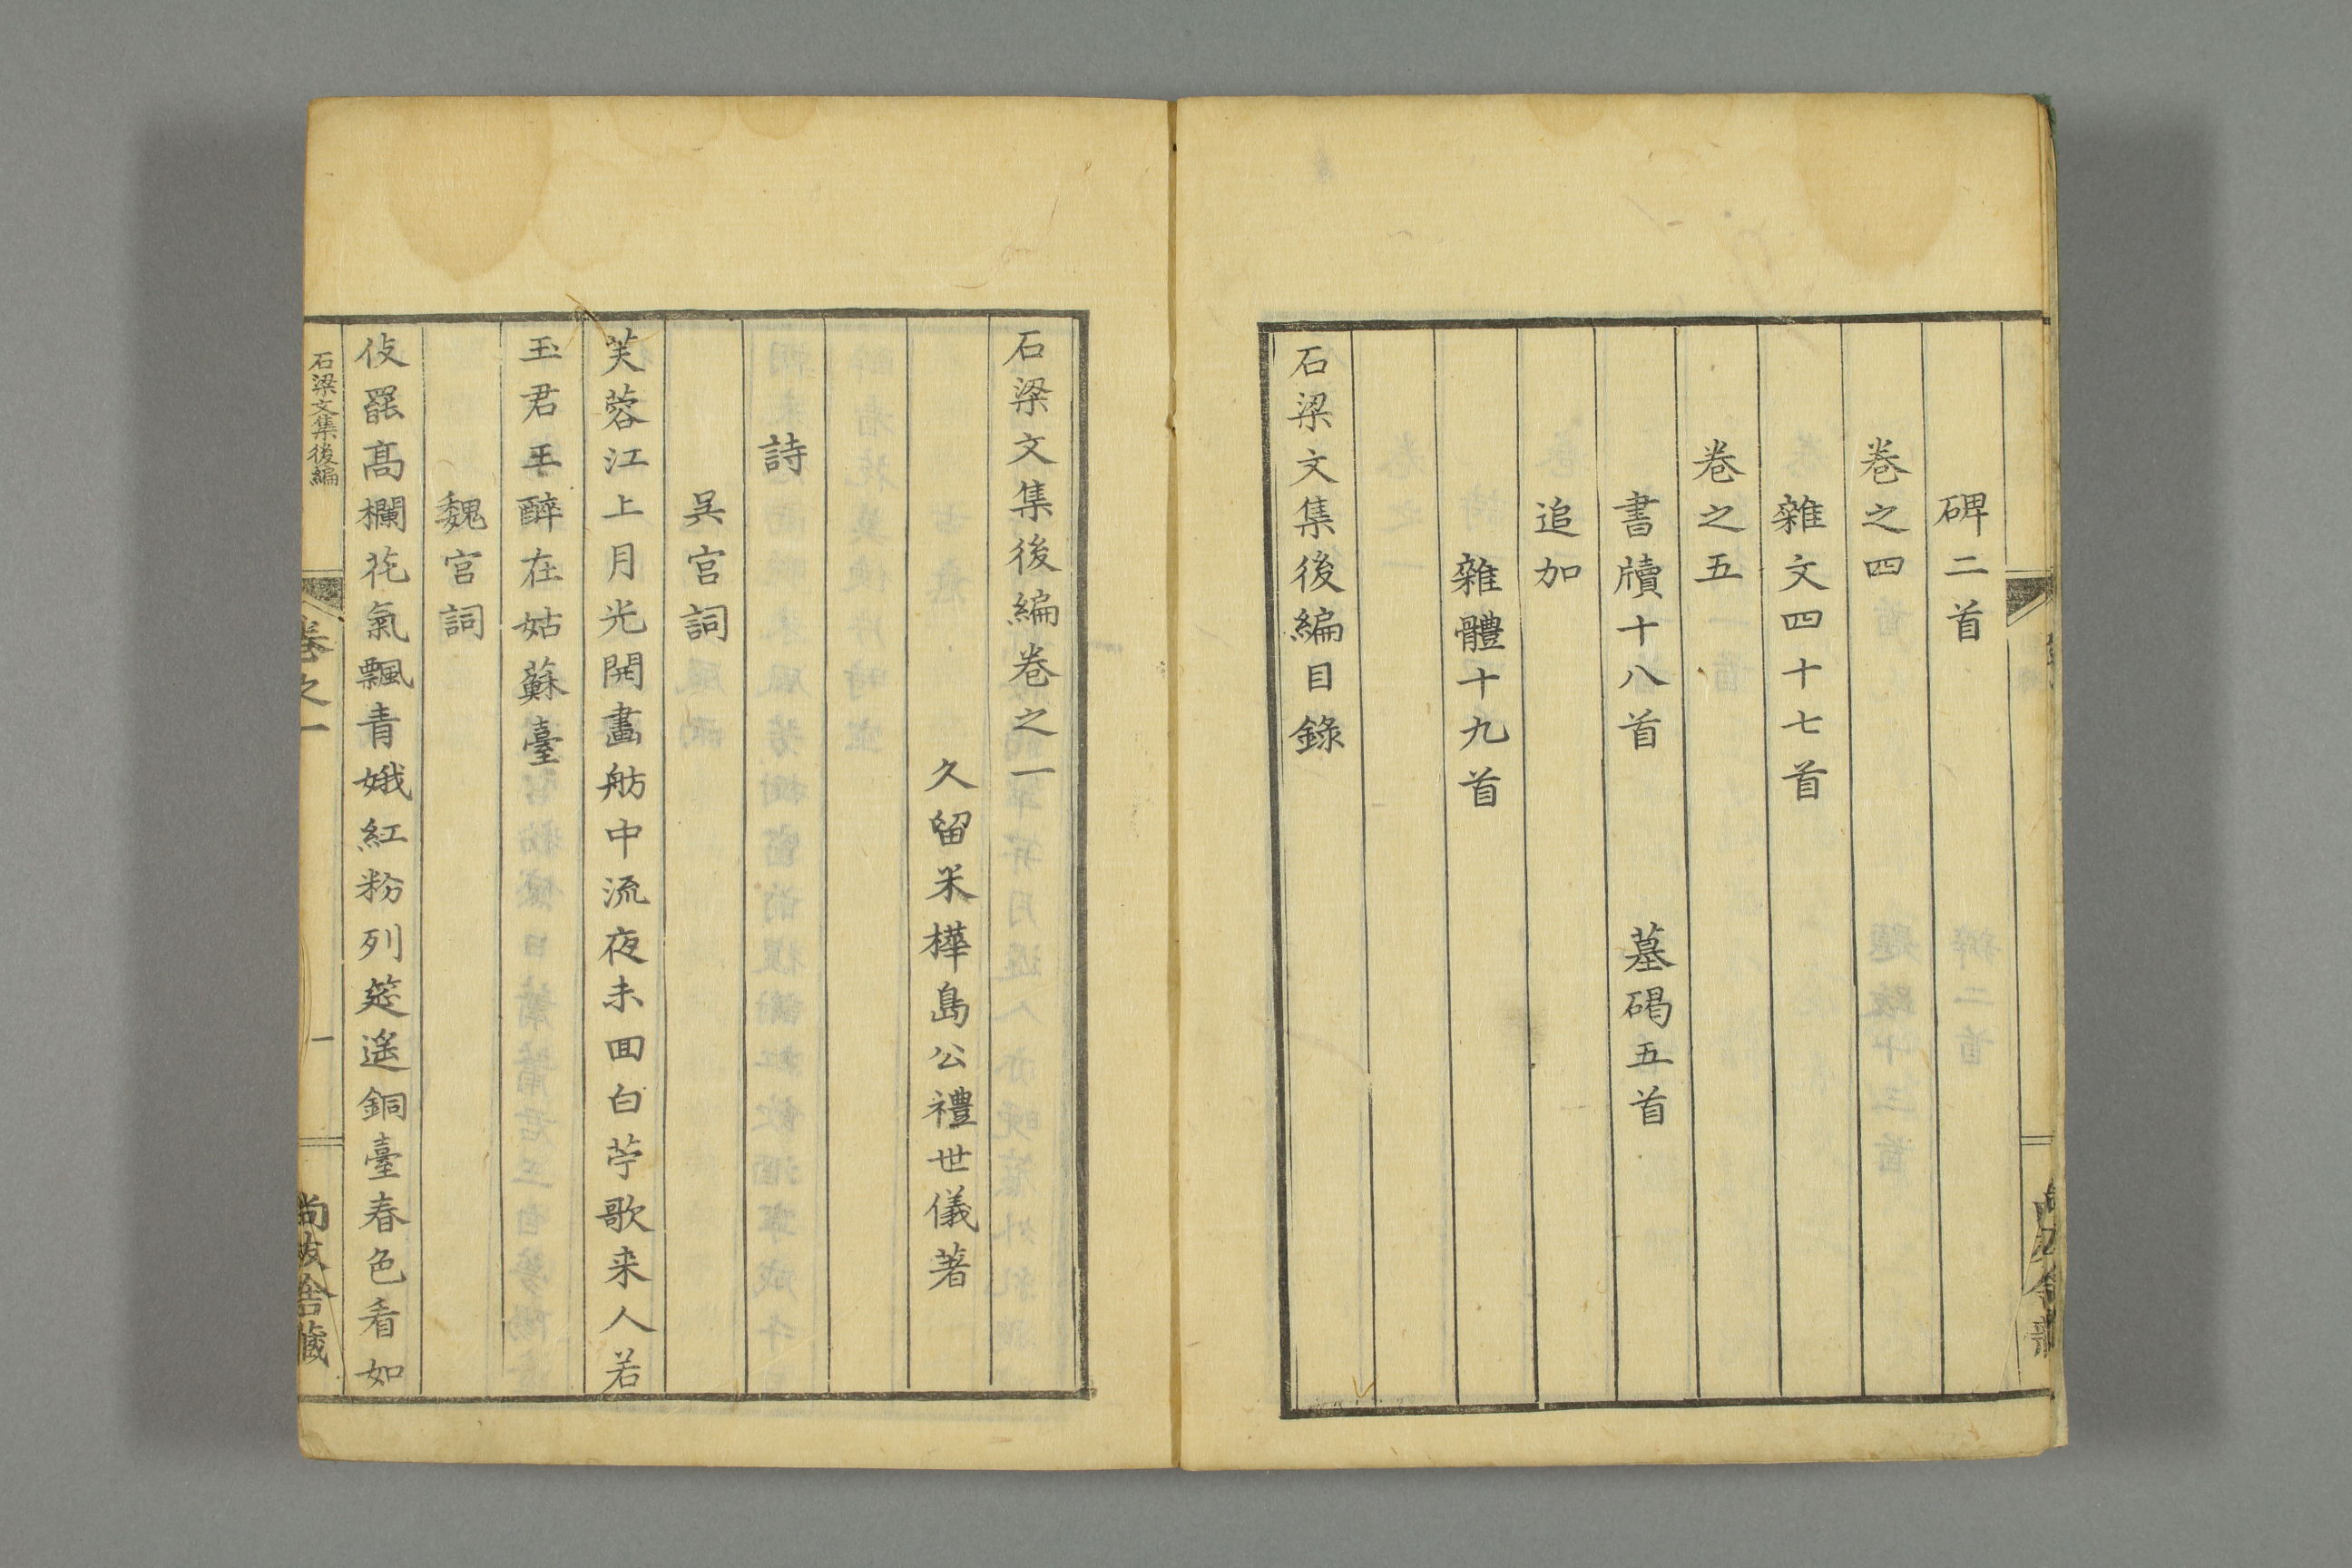 碑二首
卷之四
雜文四十七首
卷之五
書牘十八首　墓碣五首
追加
雜體十九首
石梁文集後編目錄
石梁文集後編卷之一
久留米樺島公禮世儀著
詩
吳宮詞
芙蓉江上月光開畵舫中流夜未回白苧歌来人若
玉君王醉在姑蘇臺
魏宮詞
伎罷高欄花氣飄青娥紅粉列筵遙銅臺春色看如
石梁文集後編
卷之一
一